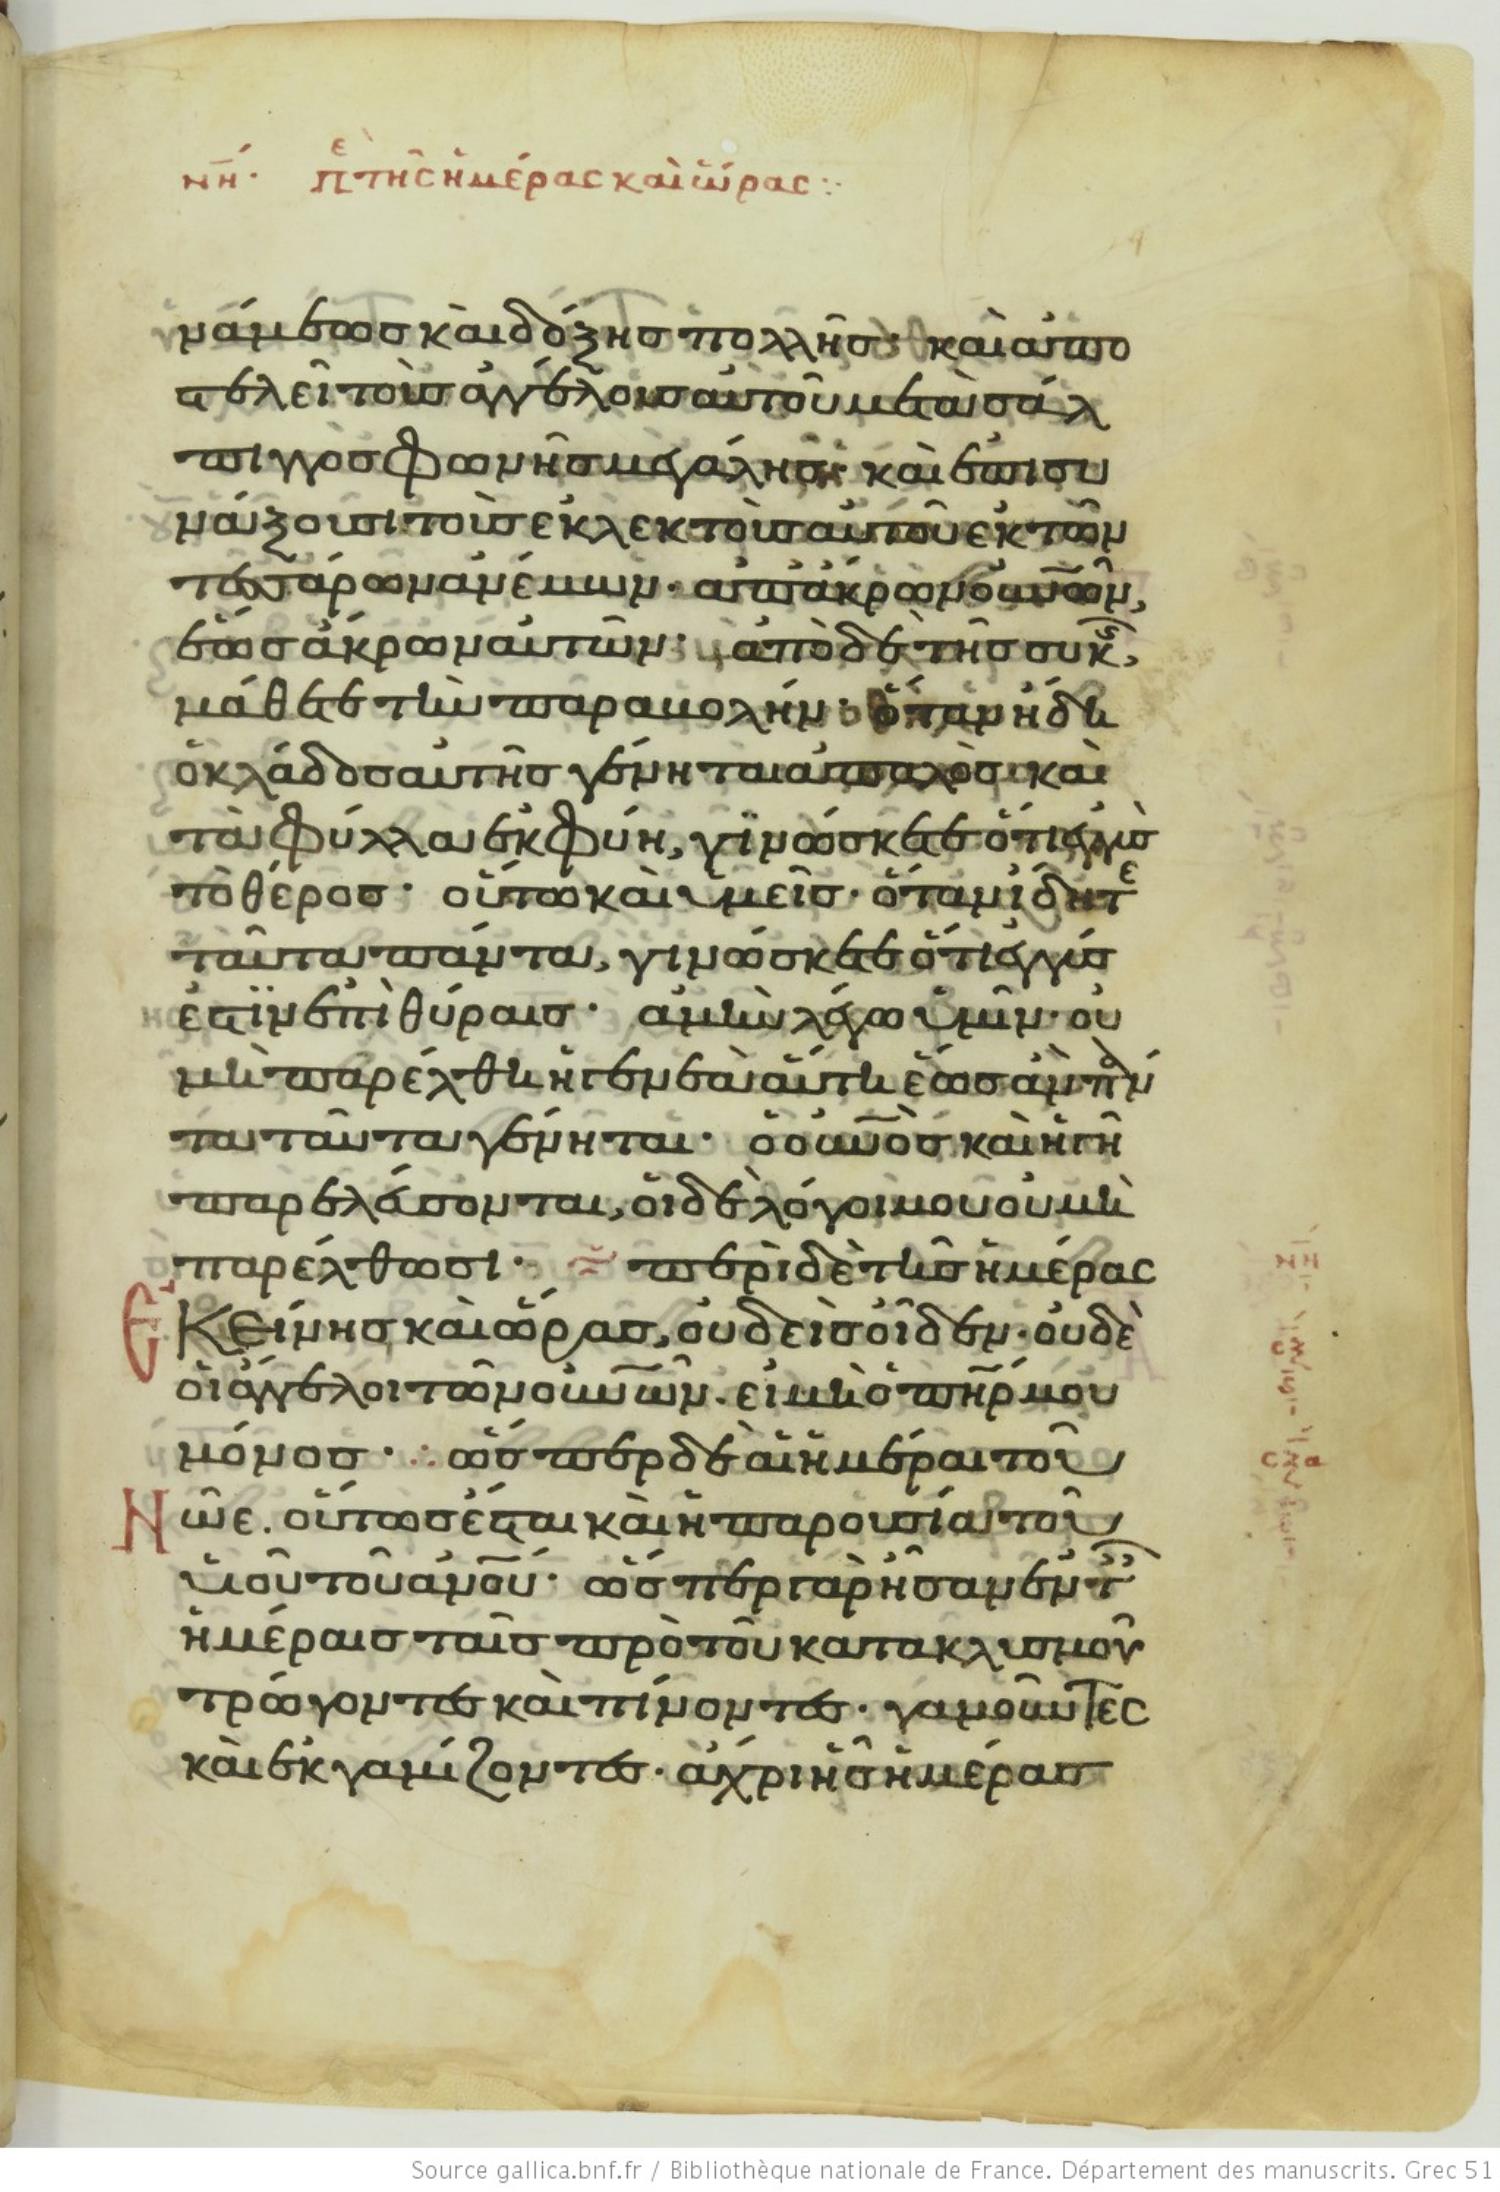 νη· πε τῆς ἡμέρας καὶ ὥρας:·
νάμεως καὶ δόξης πολλῆς· καὶ ἀπο
στελεῖ τοὺς ἀγγέλους αὐτοῦ μετὰ σάλ
πιγγος φωνῆς μεγάλης· καὶ ἐπισυ
νάξουσι τοὺς ἐκλεκτοὺς αὐτοῦ ἐκ τῶν
τεσσάρων ἀνέμων· ἀπ' ἄκρων οὐνῶν,
ἕως ἄκρων αὐτῶν· ἀπὸ δὲ τῆς συκ,
μάθετε τὴν παραβολήν· ὅταν ἤδη
ὁ κλάδος αὐτῆς γένηται ἁπαλὸς· καὶ
τὰ φύλλα ἐκφύη, γϊνώσκετε ὅτι ἐγγὺς
τὸ θέρος· οὕτω καὶ ὑμεῖς· ὅταν ἴδητε
ταῦτα πάντα, γινώσκετε ὅτι ἐγγύς
ἐστϊν ἐπὶ θύραις· ἀμὴν λέγω ὑμῖν· οὐ
μὴ παρέλθη ἡ γενεὰ αὕτη ἕως ἂν πάν
τα ταῦτα γένηται· ὁ οὐνὸς καὶ ἡ γῆ
παρελεύσονται, οἱ δὲ λόγοι μου οὐ μὴ
παρέλθωσι· περὶ δὲ τῆς ἡμέρας
Ἐκείνης καὶ ὥρας, οὐδεὶς οἶδεν· οὐδὲ
οἱ ἄγγελοι τῶν οὐνῶν. εἰ μὴ ὁ πηρ μου
μόνος· ὥσπερ δὲ αἱ ἡμέραι τοῦ
Νῶε. οὕτως ἔσται καὶ ἡ παρουσία τοῦ
υἱοῦ τοῦ ἀνου· ὥσπερ γὰρ ἦσαν ἐν τ
ἡμέραις ταῖς πρὸ τοῦ κατακλυσμοῦ
τρώγοντες καὶ πίνοντες· γαμοῦντες
καὶ ἐκγαμίζοντες· ἄχρι ἧς ἡμέρας
Source gallica.bnf.fr / Bibliothèque nationale de France. Département des manuscrits. Grec 51